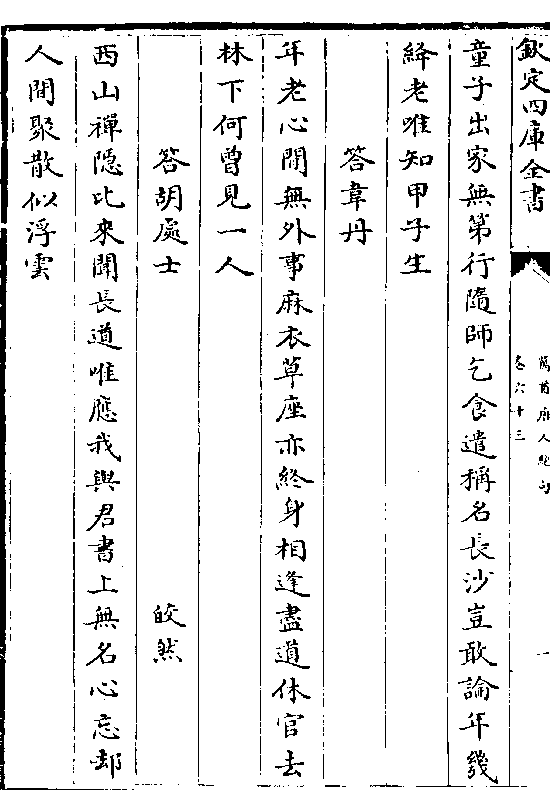 欽定四庫全書
萬首唐人絶句
卷六十三
一
童子出家無第行隨師乞食遣稱名長沙豈敢論年幾
絳老唯知甲子生
答韋丹
年老心閒無外事麻衣草座亦終身相逢盡道休官去
林下何曾見一人
答胡處士
皎然
西山禪隱比來聞長道唯應我與君書上無名心忘却
人間聚散似浮雲